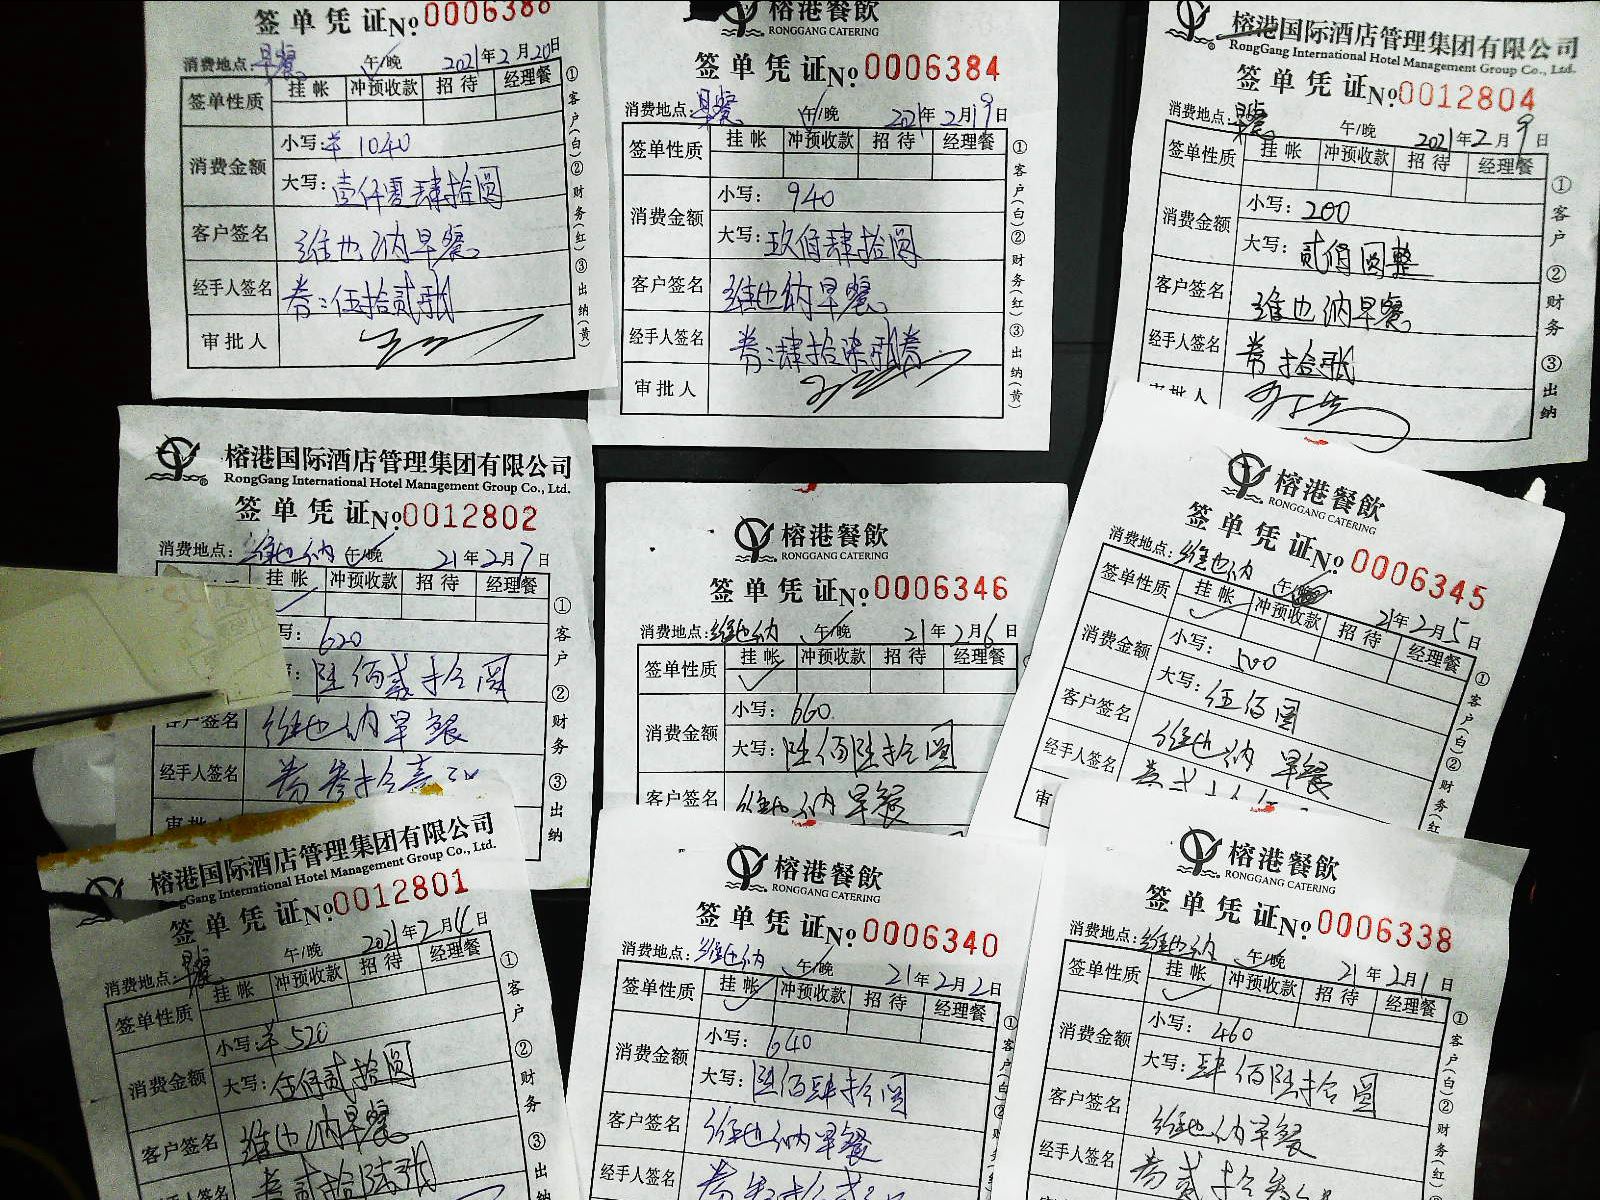 签单凭证 No 0006388
消费地点: 早餐 午/晚 2021年2月20日
签单性质 挂帐 冲预收款 招待 经理餐
消费金额 小写: 1040
大写: 壹仟零肆拾圆
客户签名 维也纳早餐
经手人签名 券:伍拾贰张
审批人
①客户(白)②财务(红)③出纳(黄)
榕港餐飲
RONGGANG CATERING
签单凭证 No 0006384
消费地点: 早餐 午/晚 2021年2月19日
签单性质 挂帐 冲预收款 招待 经理餐
消费金额 小写: 940
大写: 玖佰肆拾圆
客户签名 维也纳早餐
经手人签名 券:肆拾柒张
审批人
①客户(白)②财务(红)③出纳(黄)
榕港国际酒店管理集团有限公司
RongGang International Hotel Management Group Co., Ltd.
签单凭证 No 0012804
消费地点: 早餐 午/晚 2021年2月9日
签单性质 挂帐 冲预收款 招待 经理餐
消费金额 小写: 200
大写: 贰佰圆整
客户签名 维也纳早餐
经手人签名 券拾张
审批人
①客户 ②财务 ③出纳
榕港国际酒店管理集团有限公司
RongGang International Hotel Management Group Co., Ltd.
签单凭证 No 0012802
消费地点: 维也纳 午/晚 21年2月7日
挂帐 冲预收款 招待 经理餐
写: 620
陆佰贰拾圆
客户签名 维也纳早餐
经手人签名 券叁拾壹
审批人
①客户 ②财务 ③出纳
榕港餐飲
RONGGANG CATERING
签单凭证 No 0006346
消费地点: 维也纳 午/晚 21年2月6日
签单性质 挂帐 冲预收款 招待 经理餐
消费金额 小写: 660
大写: 陆佰陆拾圆
客户签名 维也纳早餐
榕港餐飲
RONGGANG CATERING
签单凭证 No 0006345
消费地点: 维也纳 午 21年2月5日
签单性质 挂帐 冲预收款 招待 经理餐
消费金额 小写: 500
大写: 伍佰圆
客户签名 维也纳早餐
经手人签名 券贰
审
①客户(白)②财务(红
榕港国际酒店管理集团有限公司
gGang International Hotel Management Group Co., Ltd.
签单凭证 No 0012801
消费地点: 早餐 午/晚 2021年2月4日
签单性质 挂帐 冲预收款 招待 经理餐
消费金额 小写: 520
大写: 伍佰贰拾圆
客户签名 维也纳早餐
经手人签名 券贰拾陆张
①客户 ②财务 ③出
榕港餐飲
RONGGANG CATERING
签单凭证 No 0006340
消费地点: 维也纳 午/晚 21年2月2日
签单性质 挂帐 冲预收款 招待 经理餐
消费金额 小写: 640
大写: 陆佰肆拾圆
客户签名 维也纳早餐
经手人签名 券叁拾贰
①客户(白)②财务(
榕港餐飲
RONGGANG CATERING
签单凭证 No 0006338
消费地点: 维也纳 午/晚 21年2月1日
签单性质 挂帐 冲预收款 招待 经理餐
消费金额 小写: 460
大写: 肆佰陆拾圆
客户签名 维也纳早餐
经手人签名 券贰拾叁
①客户(白)②财务(红)